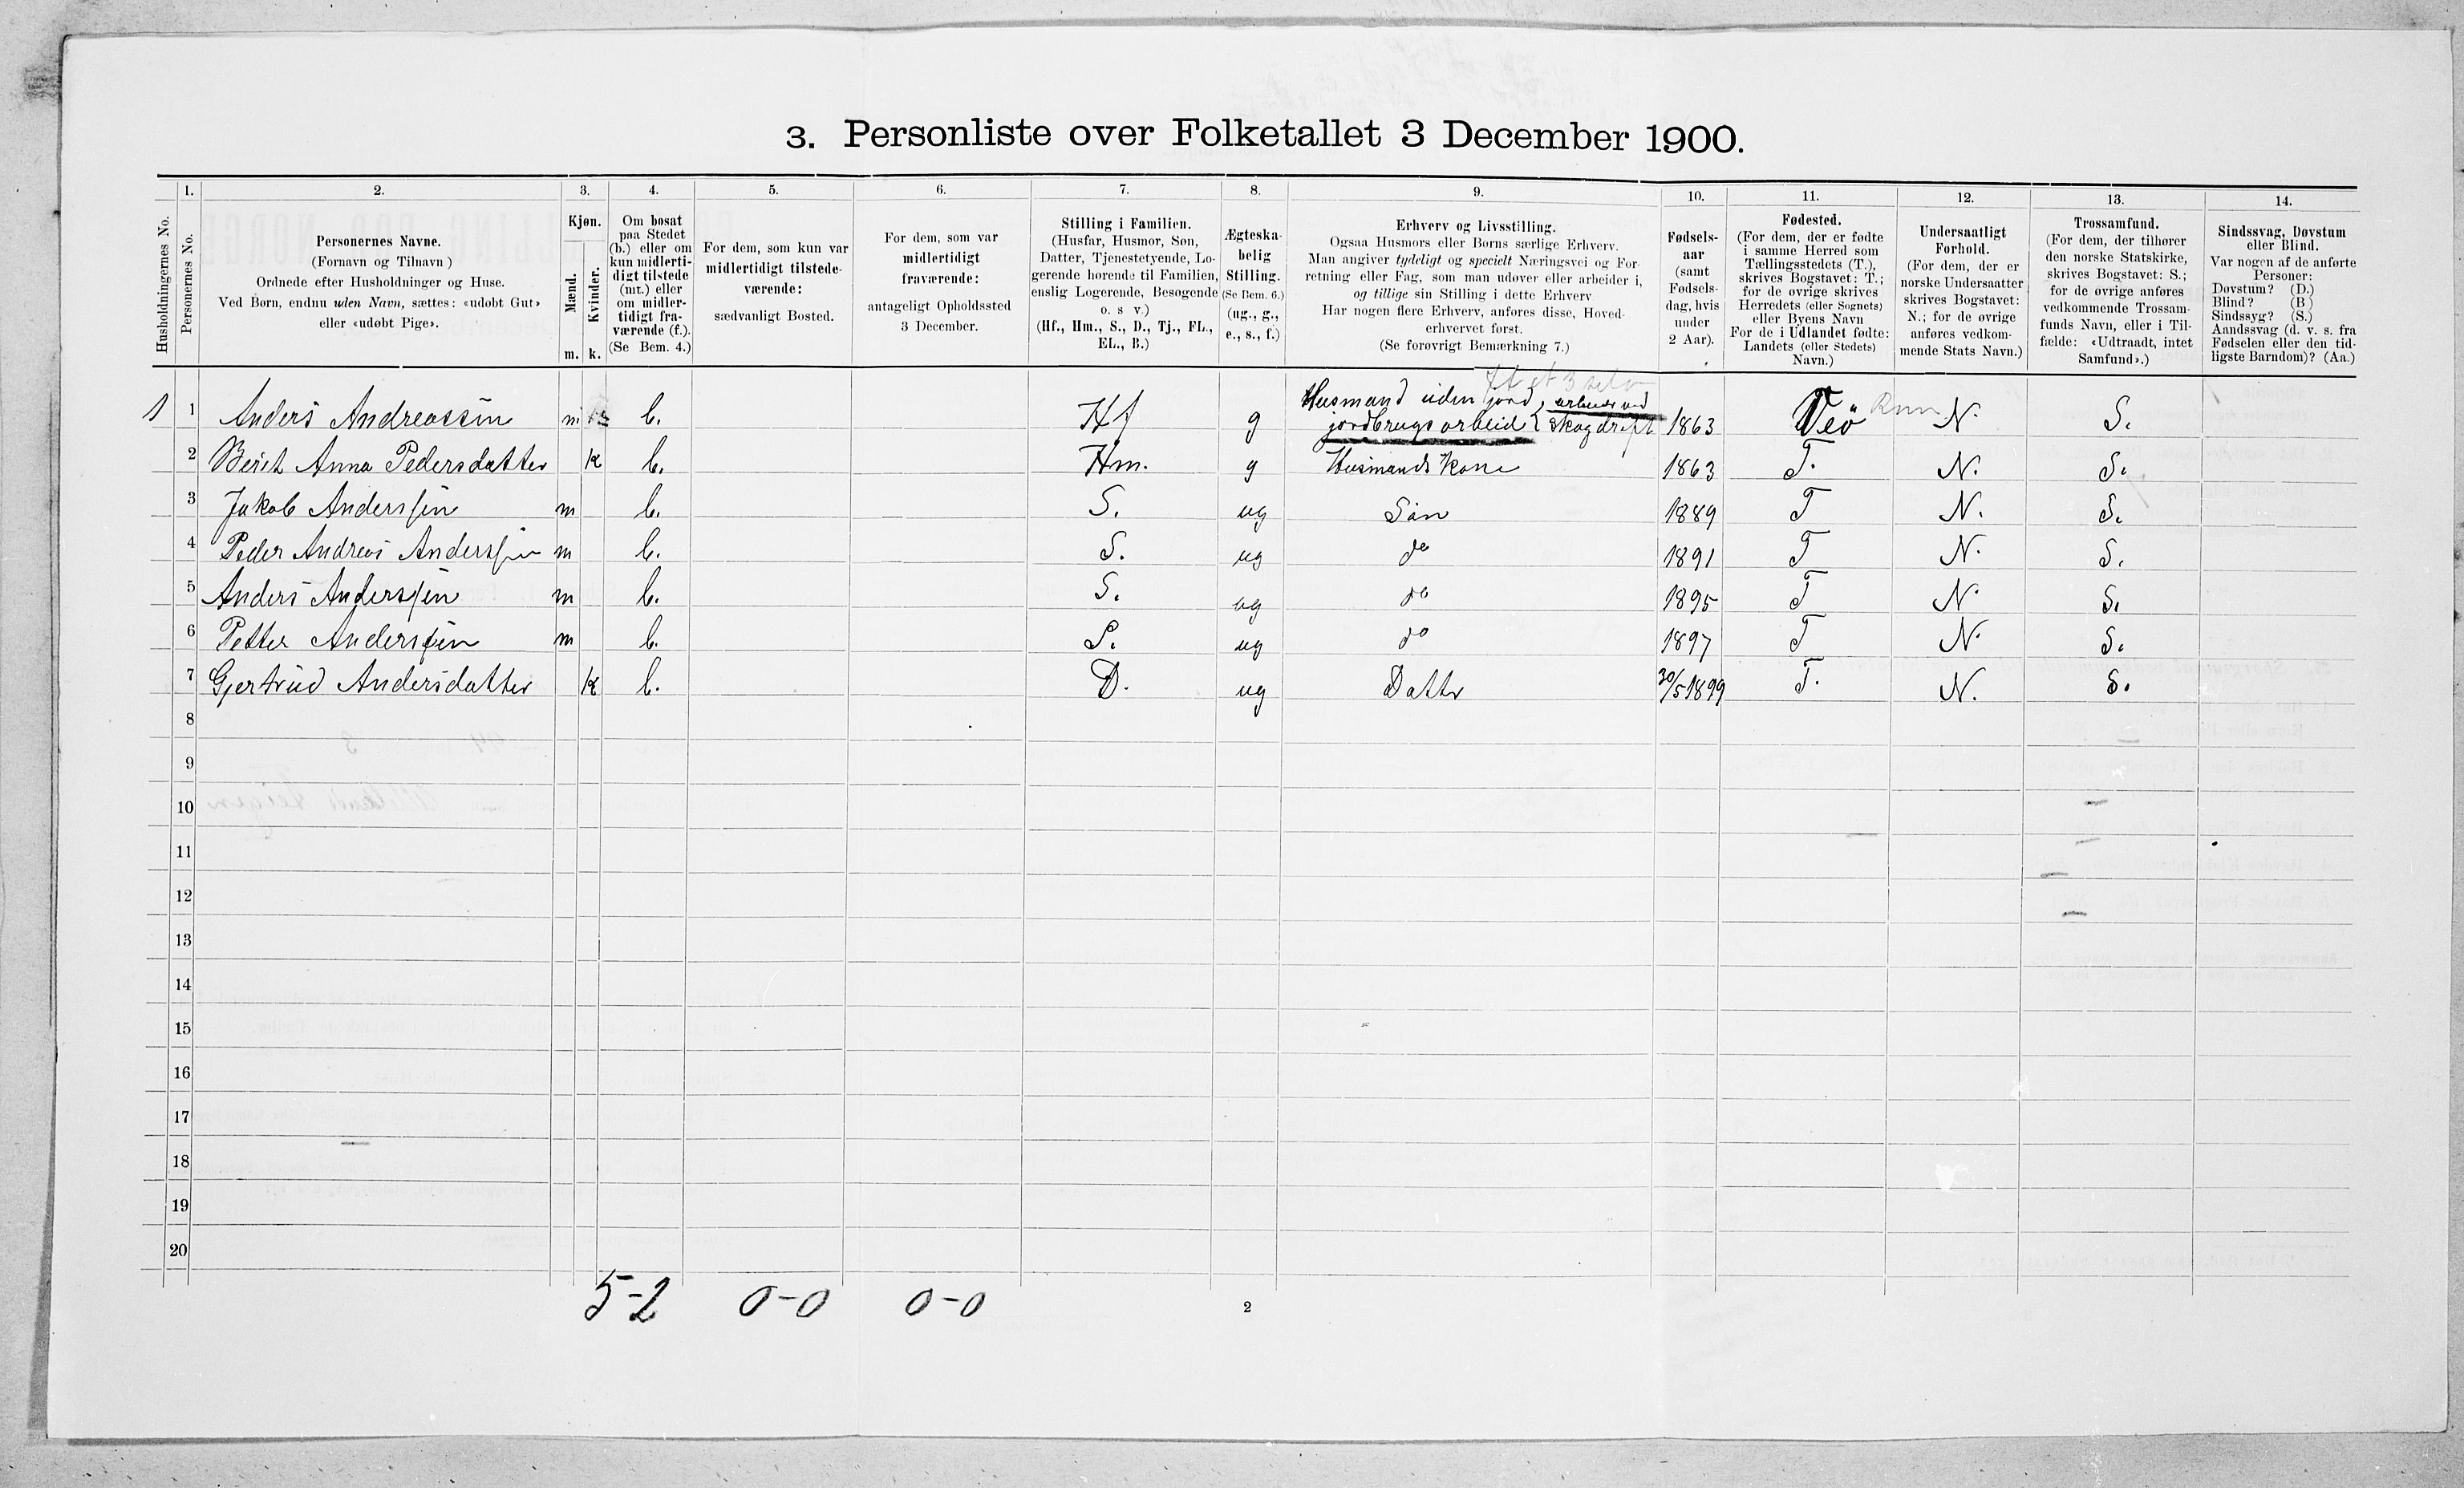 3. Personliste over Folketallet 3 December 1900.
1. 2. 3. 4. 5. 6. 7. 8. 9. 10. 11. 12. 13. 14.
Husholdningernes No.
Personernes No.
Personernes Navne.
(Fornavn og Tilnavn)
Ordnede efter Husholdninger og Huse.
Ved Børn, endnu uden Navn, sættes: «udøbt Gut»
eller «udøbt Pige».
Kjøn.
Mænd.
Kvinder.
m. k.
Om bosat
paa Stedet
(b.) eller om
kun midlerti-
digt tilstede
(mt.) eller
om midler-
tidigt fra-
værende (f.).
(Se Bem. 4.)
For dem, som kun var
midlertidigt tilstede-
værende:
sædvanligt Bosted.
For dem, som var
midlertidigt
fraværende:
antageligt Opholdssted
3 December.
Stilling i Familien.
(Husfar, Husmor, Søn,
Datter, Tjenestetyende, Lo-
gerende hørende til Familien,
enslig Logerende, Besøgende
o. s v.)
(Hf., Hm., S., D., Tj., FL.,
EL., B.)
Ægteska-
belig
Stilling.
(Se Bem. 6.)
(ug., g.,
e., s., f.)
Erhverv og Livsstilling.
Ogsaa Husmors eller Børns særlige Erhverv.
Man angiver tydeligt og specielt Næringsvei og For-
retning eller Fag, som man udøver eller arbeider i,
og tillige sin Stilling i dette Erhverv
Har nogen flere Erhverv, anføres disse, Hoved-
erhvervet først.
(Se forøvrigt Bemærkning 7.)
Fødsels-
aar
(samt
Fødsels-
dag, hvis
under
2 Aar).
Fødested.
(For dem, der er fødte
i samme Herred som
Tællingsstedets (T.),
skrives Bogstavet: T.;
for de øvrige skrives
Herredets (eller Sognets)
eller Byens Navn
For de i Udlandet fødte:
Landets (eller Stedets)
Navn.)
Undersaatligt
Forhold.
(For dem, der er
norske Undersaatter
skrives Bogstavet:
N.; for de øvrige
anføres vedkom-
mende Stats Navn.)
Trossamfund.
(For dem, der tilhører
den norske Statskirke,
skrives Bogstavet: S.;
for de øvrige anføres
vedkommende Trossam-
funds Navn, eller i Til-
fælde: «Udtraadt, intet
Samfund».)
Sindssvag, Døvstum
eller Blind.
Var nogen af de anførte
Personer:
Døvstum? (D.)
Blind? (B)
Sindssyg? (S.)
Aandssvag (d. v. s. fra
Fødselen eller den tid-
ligste Barndom)? (Aa.)
1 1 Anders Andreassen m b. Hf g Husmand uden jord, arbeider ved
jordbrugsarbeide & skogdrift 1863 Veø N. S.
2 Berit Anna Pedersdatter k b. Hm. g Husmands kone 1863 T. N. S.
3 Jakob Anderssen m b. S. ug Søn 1889 T N. S.
4 Peder Andreas Anderssen m b. S. ug do 1891 T N. S.
5 Anders Anderssen m b. S. ug do 1895 T N. S.
6 Petter Anderssen m b. S. ug do 1897 T N. S.
7 Gjertrud Andersdatter k b. D. ug Datter 30/5 1899 T. N. S.
8
9
10
11
12
13
14
15
16
17
18
19
20
5-2 0-0 0-0
2